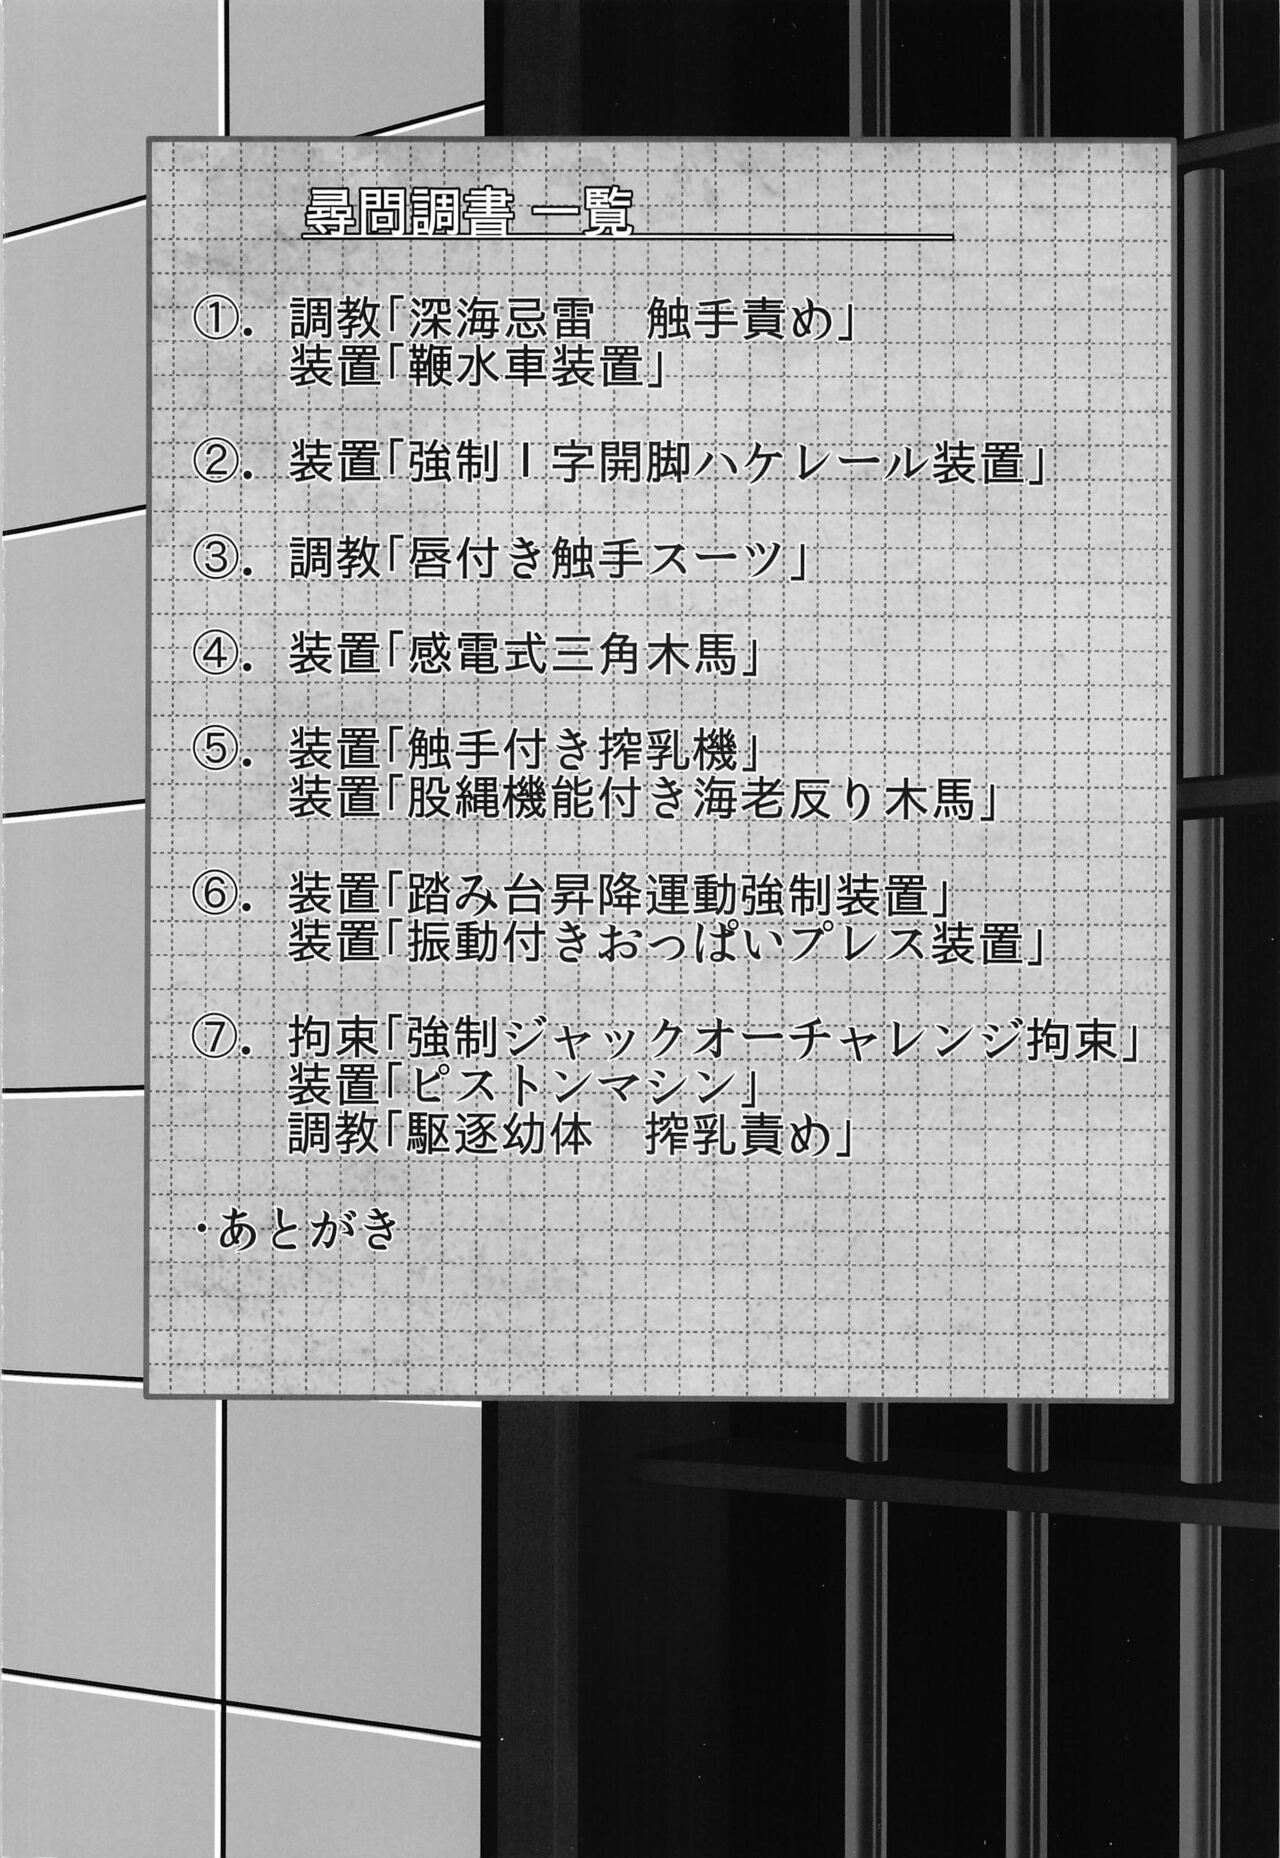 尋問調書 一覧
①．調教「深海忌雷　触手責め」
装置「鞭水車装置」
②．装置「強制Ｉ字開脚ハケレール装置」
③．調教「唇付き触手スーツ」
④．装置「感電式三角木馬」
⑤．装置「触手付き搾乳機」
装置「股縄機能付き海老反り木馬」
⑥．装置「踏み台昇降運動強制装置」
装置「振動付きおっぱいプレス装置」
⑦．拘束「強制ジャックオーチャレンジ拘束」
装置「ピストンマシン」
調教「駆逐幼体　搾乳責め」
・あとがき